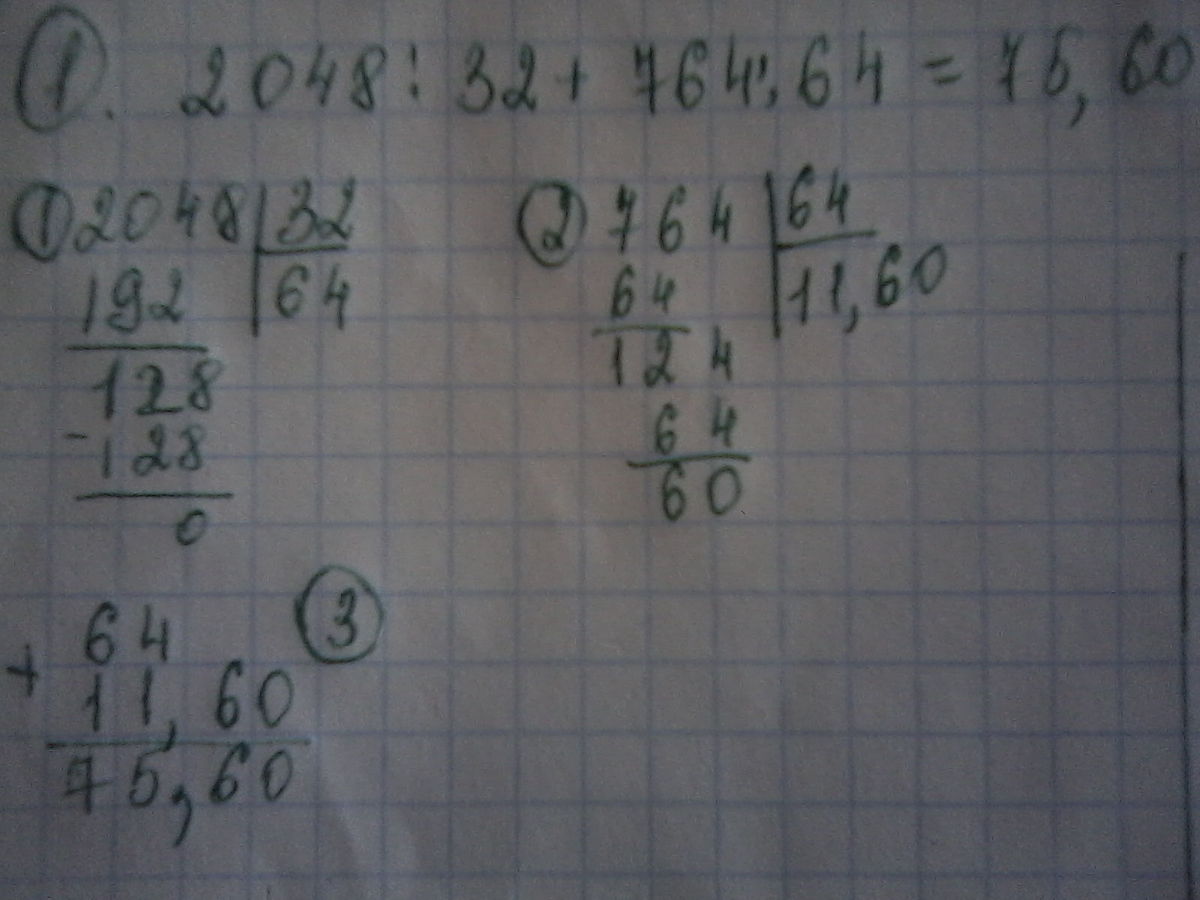 1. 2048 : 32 + 764 : 64 = 75,60
1 2048 32
192 64
128
- 128
0
2 764 64
64 11,60
124
64
60
3
64
+ 11,60
75,60